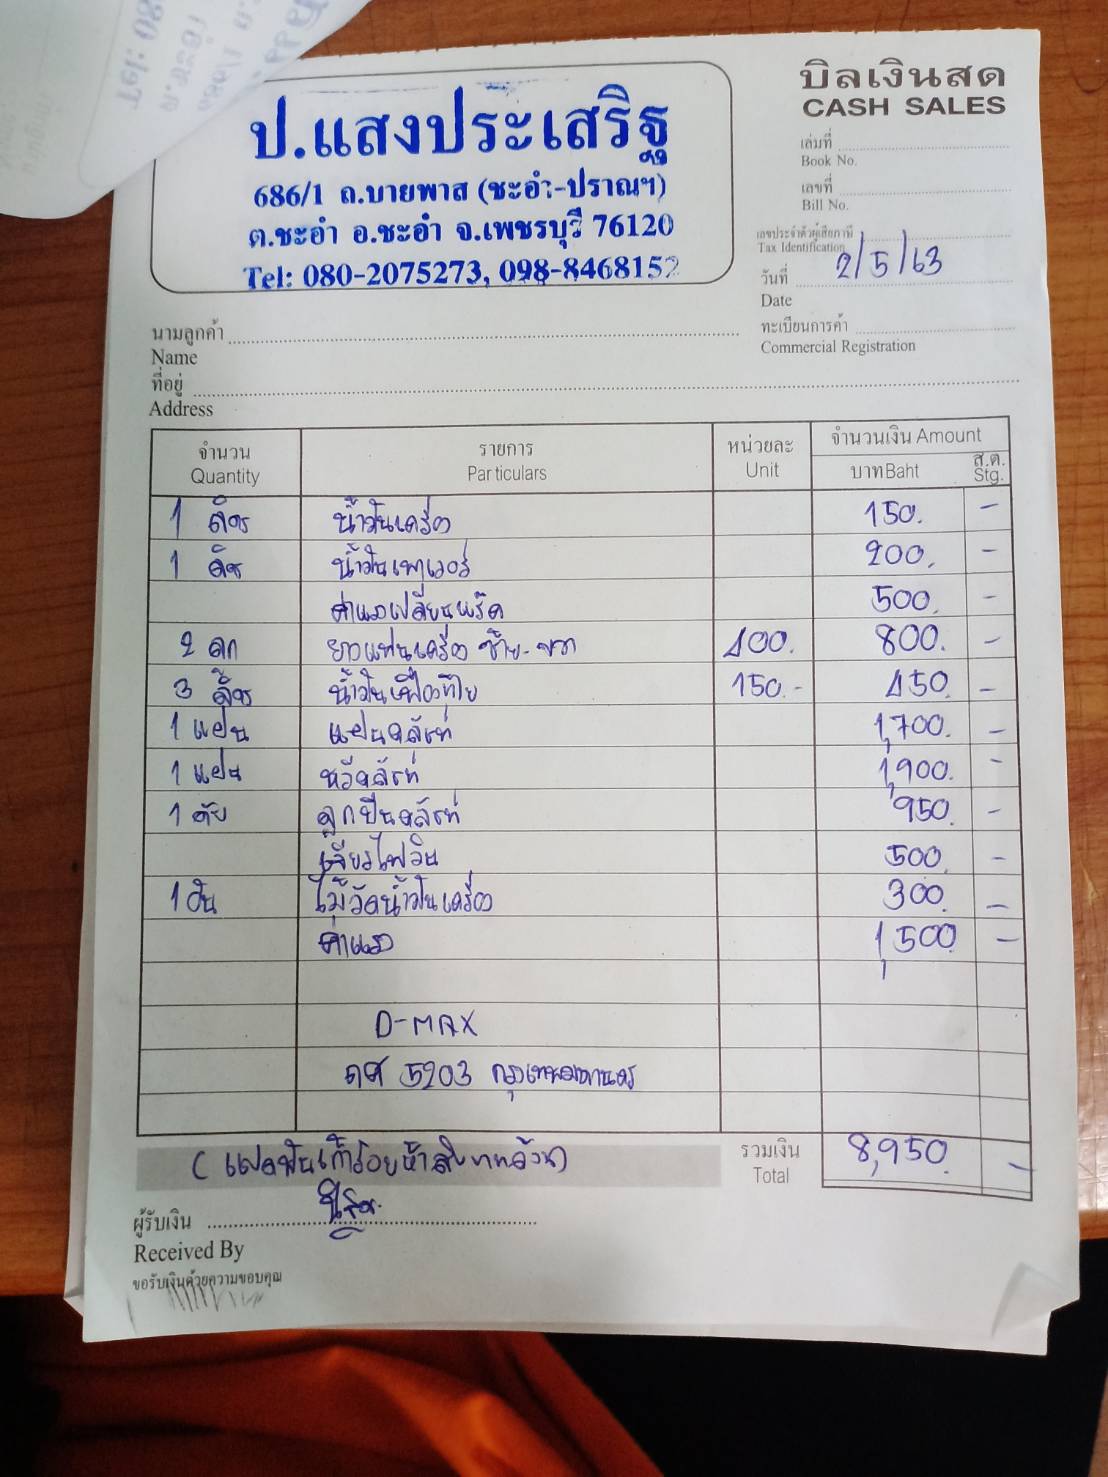 บิลเงินสด
CASH SALES
ป.แสงประเสริฐ
686/1 ถ.บายพาส (ชะอำ-ปราณฯ)
ต.ชะอำ อ.ชะอำ จ.เพชรบุรี 76120
Tel: 080-2075273, 098-8468152
เล่มที่
Book No.
เลขที่
Bill No.
เลขประจำตัวผู้เสียภาษี
Tax Identification
วันที่ 2/5/63
Date
ทะเบียนการค้า
Commercial Registration
นามลูกค้า
Name
ที่อยู่
Address
จำนวน รายการ หน่วยละ จำนวนเงิน Amount
Quantity Particulars Unit บาท Baht ส.ต. Stg.
1 ลิตร น้ำมันเครื่อง 150. -
1 ลิตร น้ำมันเพาเวอร์ 200. -
ค่าแรงเปลี่ยนแร็ค 500. -
2 ลูก ยางแท่นเครื่อง ซ้าย-ขวา 400. 800. -
3 ลิตร น้ำมันเฟืองท้าย 150.- 450. -
1 แผ่น แผ่นคลัทช์ 1,700. -
1 แผ่น หวีคลัทช์ 1,900. -
1 ตับ ลูกปืนคลัทช์ 950. -
เจียรไฟวิน 500. -
1 อัน ไม้วัดน้ำมันเครื่อง 300. -
ค่าแรง 1,500 -
D-MAX
5203 กรุงเทพมหานคร
(แปดพันเก้าร้อยห้าสิบบาทถ้วน) รวมเงิน 8,950. -
Total
ผู้รับเงิน
Received By
ขอรับเงินด้วยความขอบคุณ